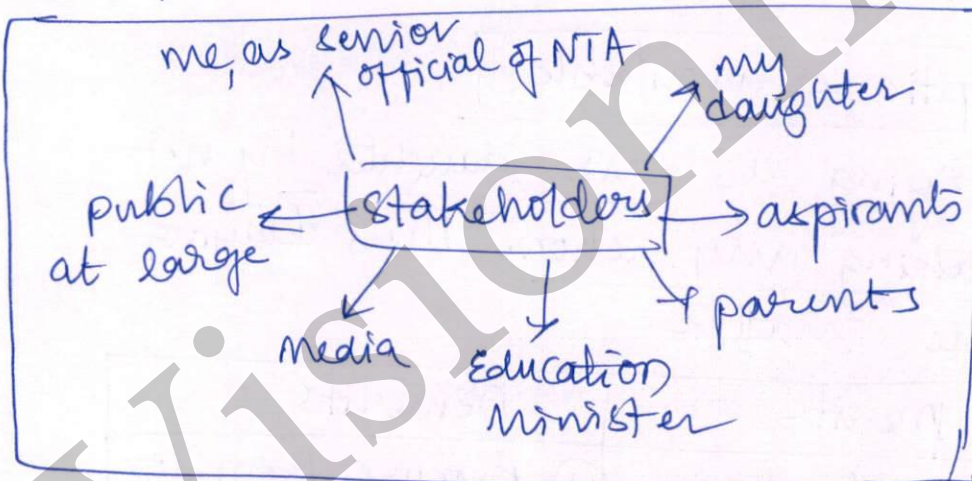 me, as senior
official of NTA
my
daughter
public
at large
stakeholders
aspirants
parents
Media
Education
Minister
Vision